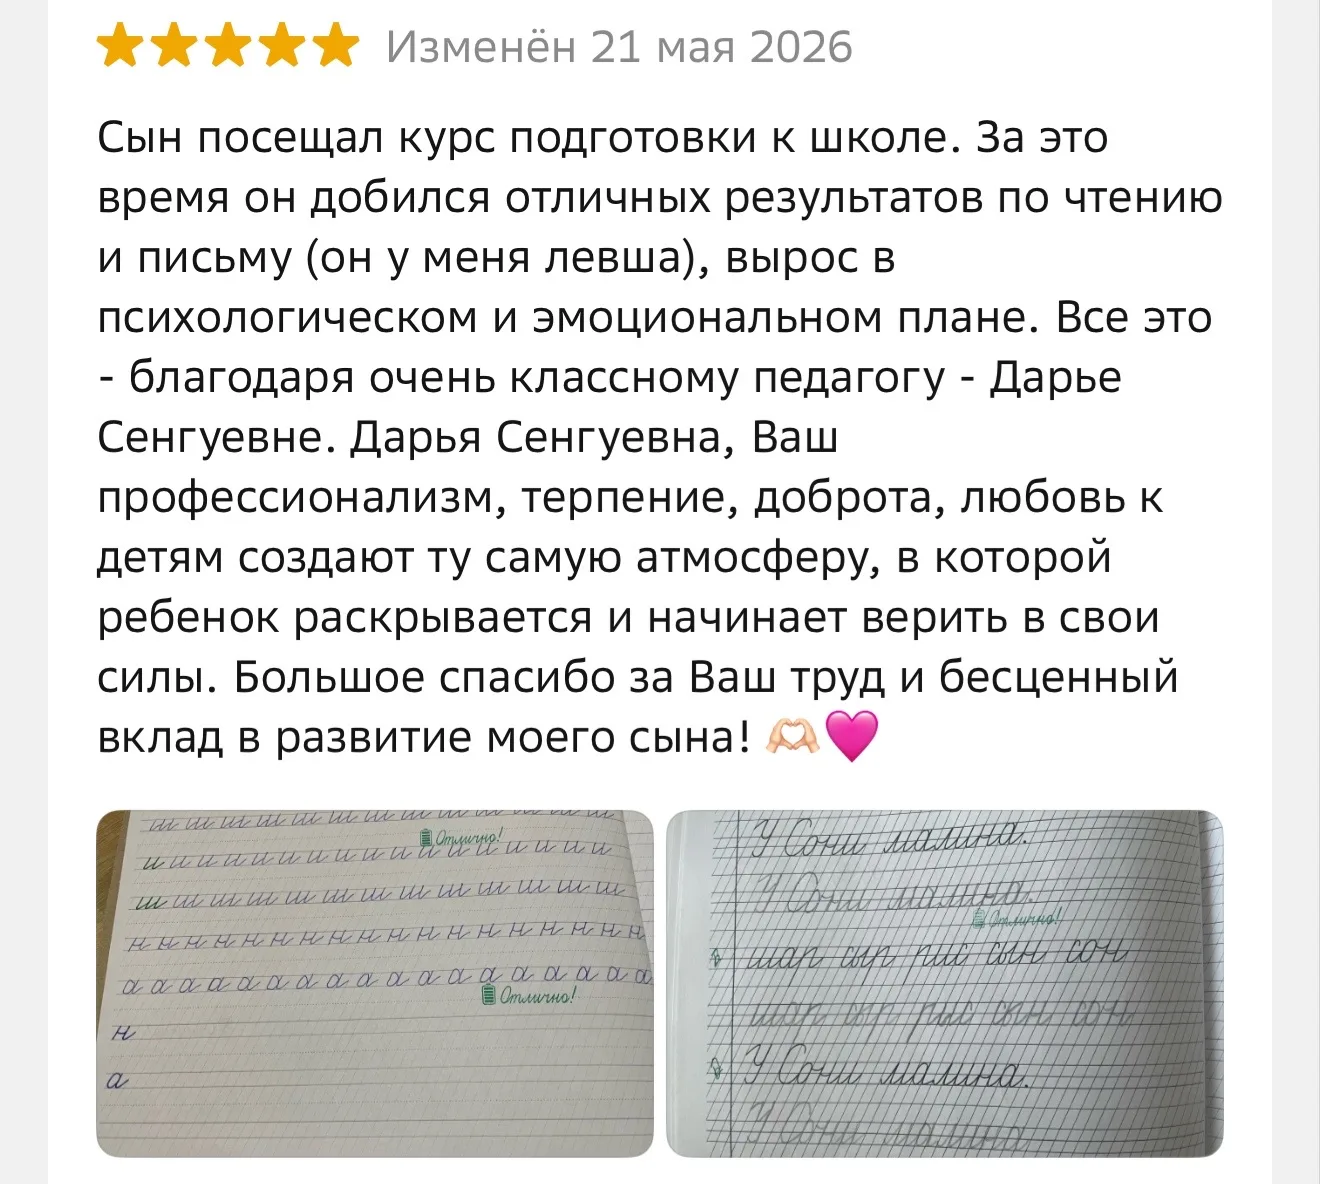 Изменён 21 мая 2026
Сын посещал курс подготовки к школе. За это
время он добился отличных результатов по чтению
и письму (он у меня левша), вырос в
психологическом и эмоциональном плане. Все это
- благодаря очень классному педагогу - Дарье
Сенгуевне. Дарья Сенгуевна, Ваш
профессионализм, терпение, доброта, любовь к
детям создают ту самую атмосферу, в которой
ребенок раскрывается и начинает верить в свои
силы. Большое спасибо за Ваш труд и бесценный
вклад в развитие моего сына! 🫶🏻🩷
ш ш ш ш ш ш ш ш ш ш ш ш ш
Отлично!
и и и и и и и и и и и и и и и и и
ш ш ш ш ш ш ш ш ш ш ш ш ш
н н н н н н н н н н н н н н н н н н
а а а а а а а а а а а а а а а а а а
Отлично!
н
а
У Сони малина.
У Сони малина.
Отлично!
шар сыр рис сын сон
шар сыр рис сын сон
У Сони малина.
У Сони малина